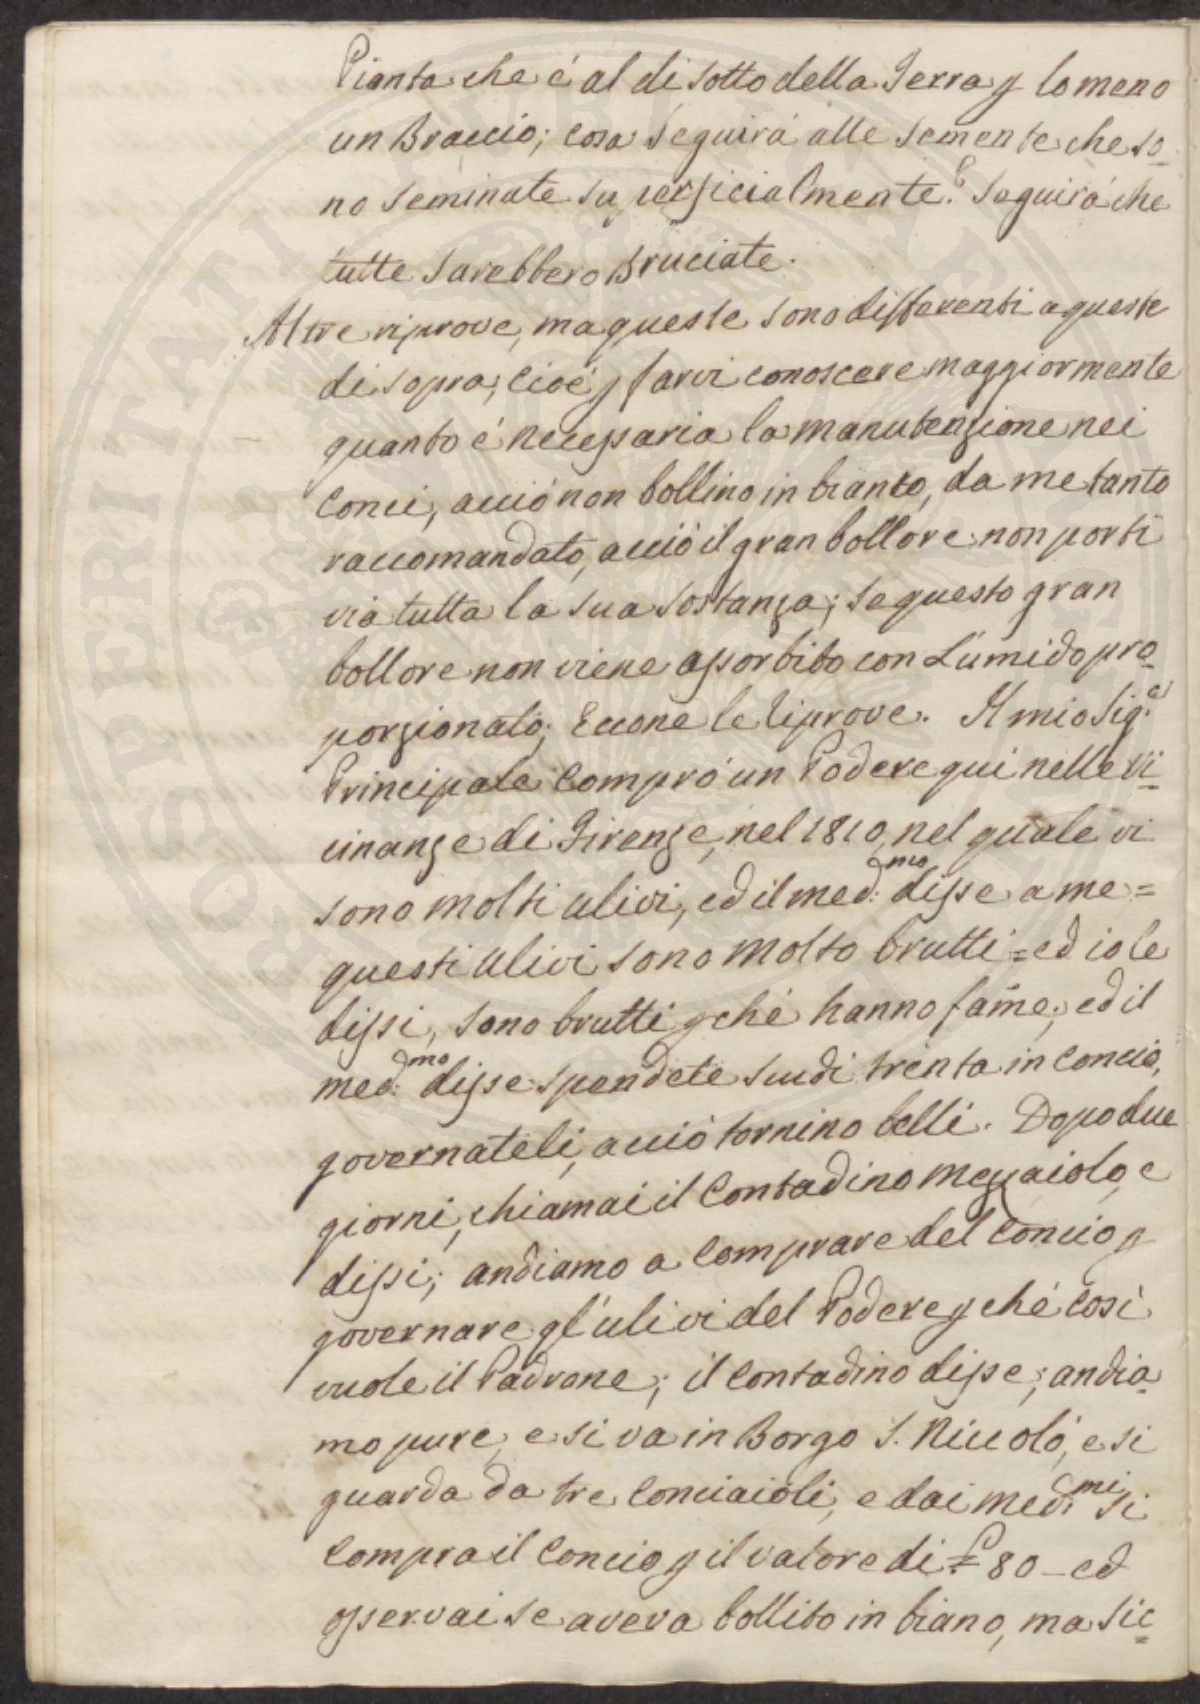 Pianta che é al di sotto della Terra p lo meno
un Braccio; cosa seguirá alle semente che so-
no seminate superficialmente? Seguirá che
tutte sarebbero Bruciate.
Altre riprove, ma queste sono differenti a queste
di sopra; Cioé p farvi conoscere maggiormente
quanto é necessaria la manutenzione nei
Conci, acció non bollino in bianco, da me tanto
raccomandato, acció il gran bollore non porti
via tutta la sua sostanza; se questo gran
bollore non viene assorbito con L'umido pro-
porzionato; Eccone le riprove. Il mio Sig.e
Principale Compró un Podere qui nelle vi-
cinanze di Firenze, nel 1810, nel quale vi
sono molti ulivi, ed il med:mo disse a me =
questi Ulivi sono molto brutti = ed io le
dissi, sono brutti pché hanno fame; ed il
med:mo disse spendete scudi trenta in Concio,
governateli, acció tornino belli. Dopo due
giorni, chiamai il Contadino mezzaiolo, e
dissi; andiamo a Comprare del Concio p
governare gl'ulivi del Podere pché cosi
vuole il Padrone; il Contadino disse; andia-
mo pure, e si va in Borgo S. Niccoló, e si
guarda da tre Conciaioli, e dai med:mi si
Compra il Concio p il valore di = £ 80 - ed
osservai se aveva bollito in biano, ma sic=